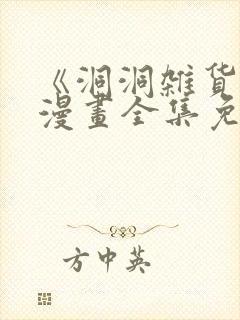 《洞洞雑货
漫畫全集免
方中英